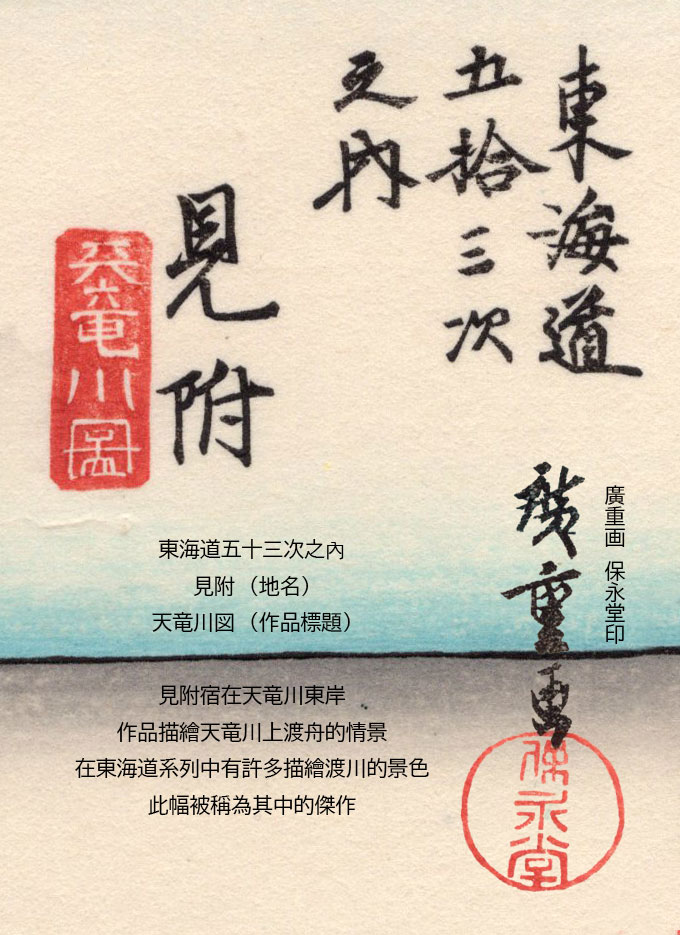 東海道
五拾三次
之内
見附
天竜川図
廣重画
保永堂
廣重画 保永堂印
東海道五十三次之內
見附（地名）
天竜川図（作品標題）
見附宿在天竜川東岸
作品描繪天竜川上渡舟的情景
在東海道系列中有許多描繪渡川的景色
此幅被稱為其中的傑作